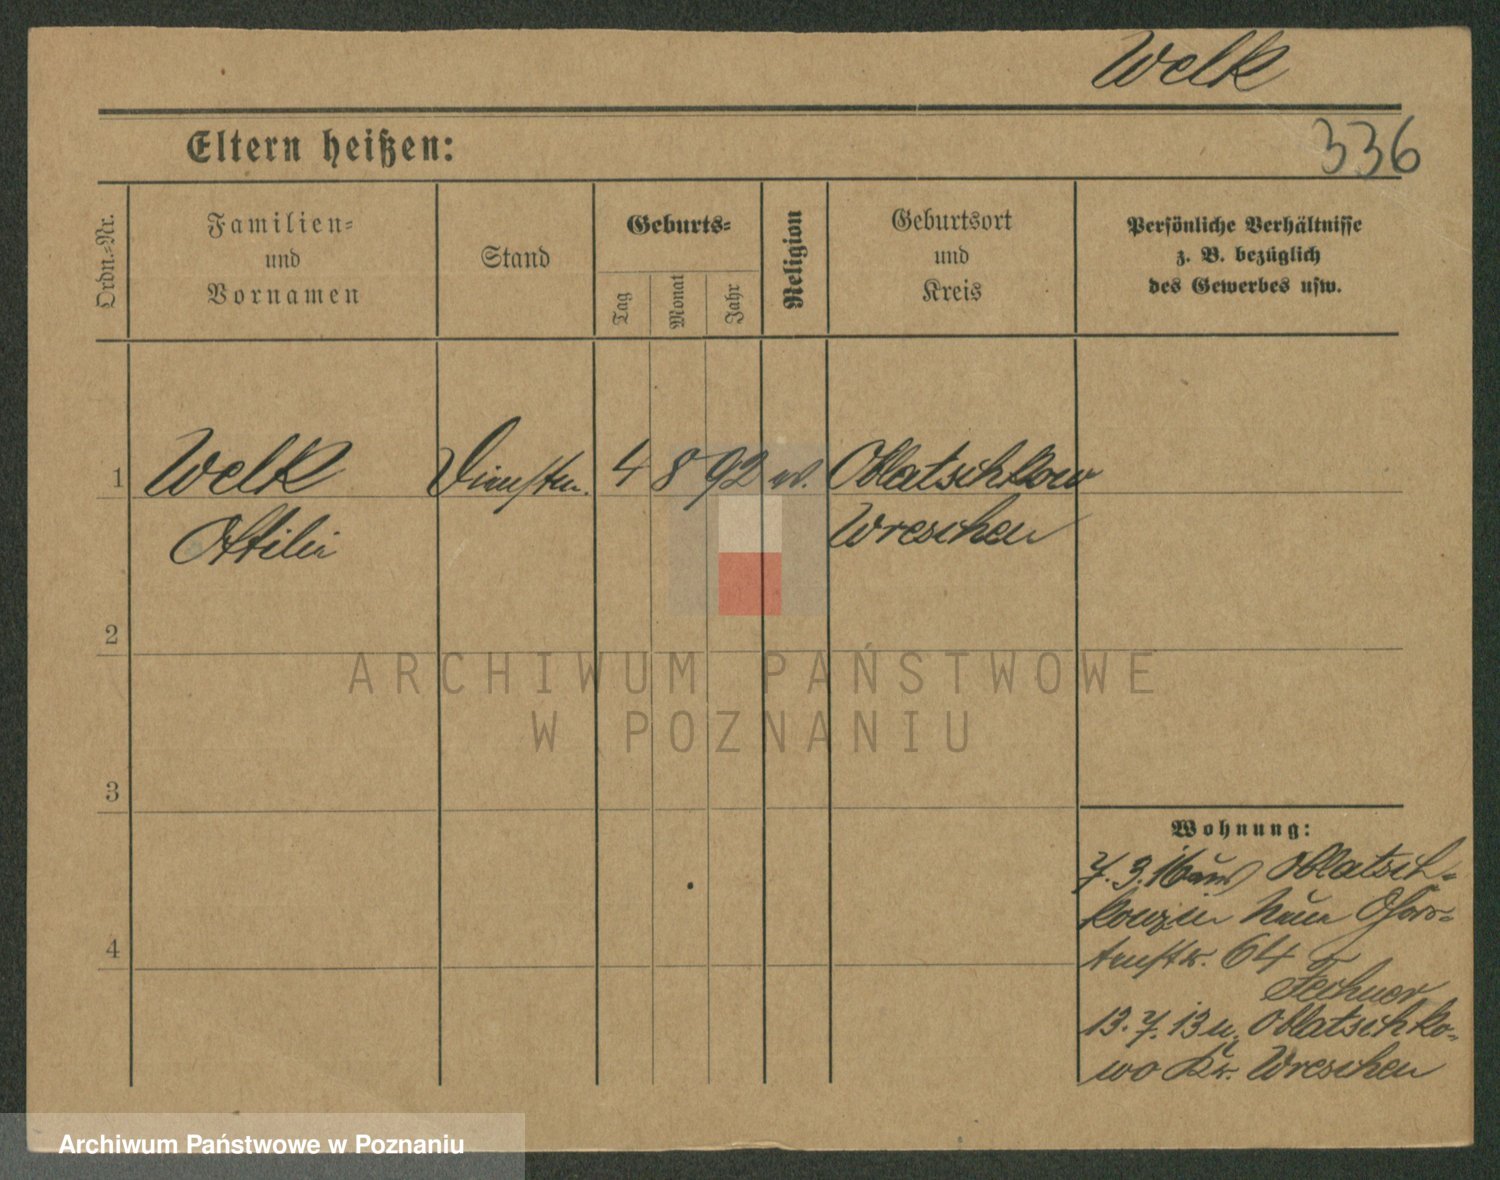 Welk
336
Eltern heißen:
Ordn.-Nr.
Familien-
und
Vornamen
Stand
Geburts-
Tag
Monat
Jahr
Religion
Geburtsort
und
Kreis
Persönliche Verhältnisse
z. B. bezüglich
des Gewerbes usw.
1 Welk Dienstm. 4 8 92 Oblatschkow
Ottilie Wreschen
2
3
4
Wohnung:
7. 3. Oblatsch-
Gar-
tenstr. 64
Fechner
13. 7. 13 u. Oblatschko-
wo Kr. Wreschen
ARCHIWUM PAŃSTWOWE
W POZNANIU
Archiwum Państwowe w Poznaniu